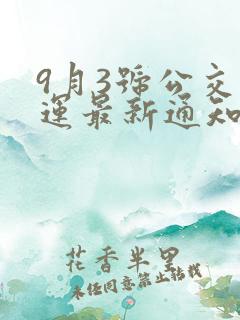 9月3號公交
運最新通知
花香半里
未经同意禁止转载